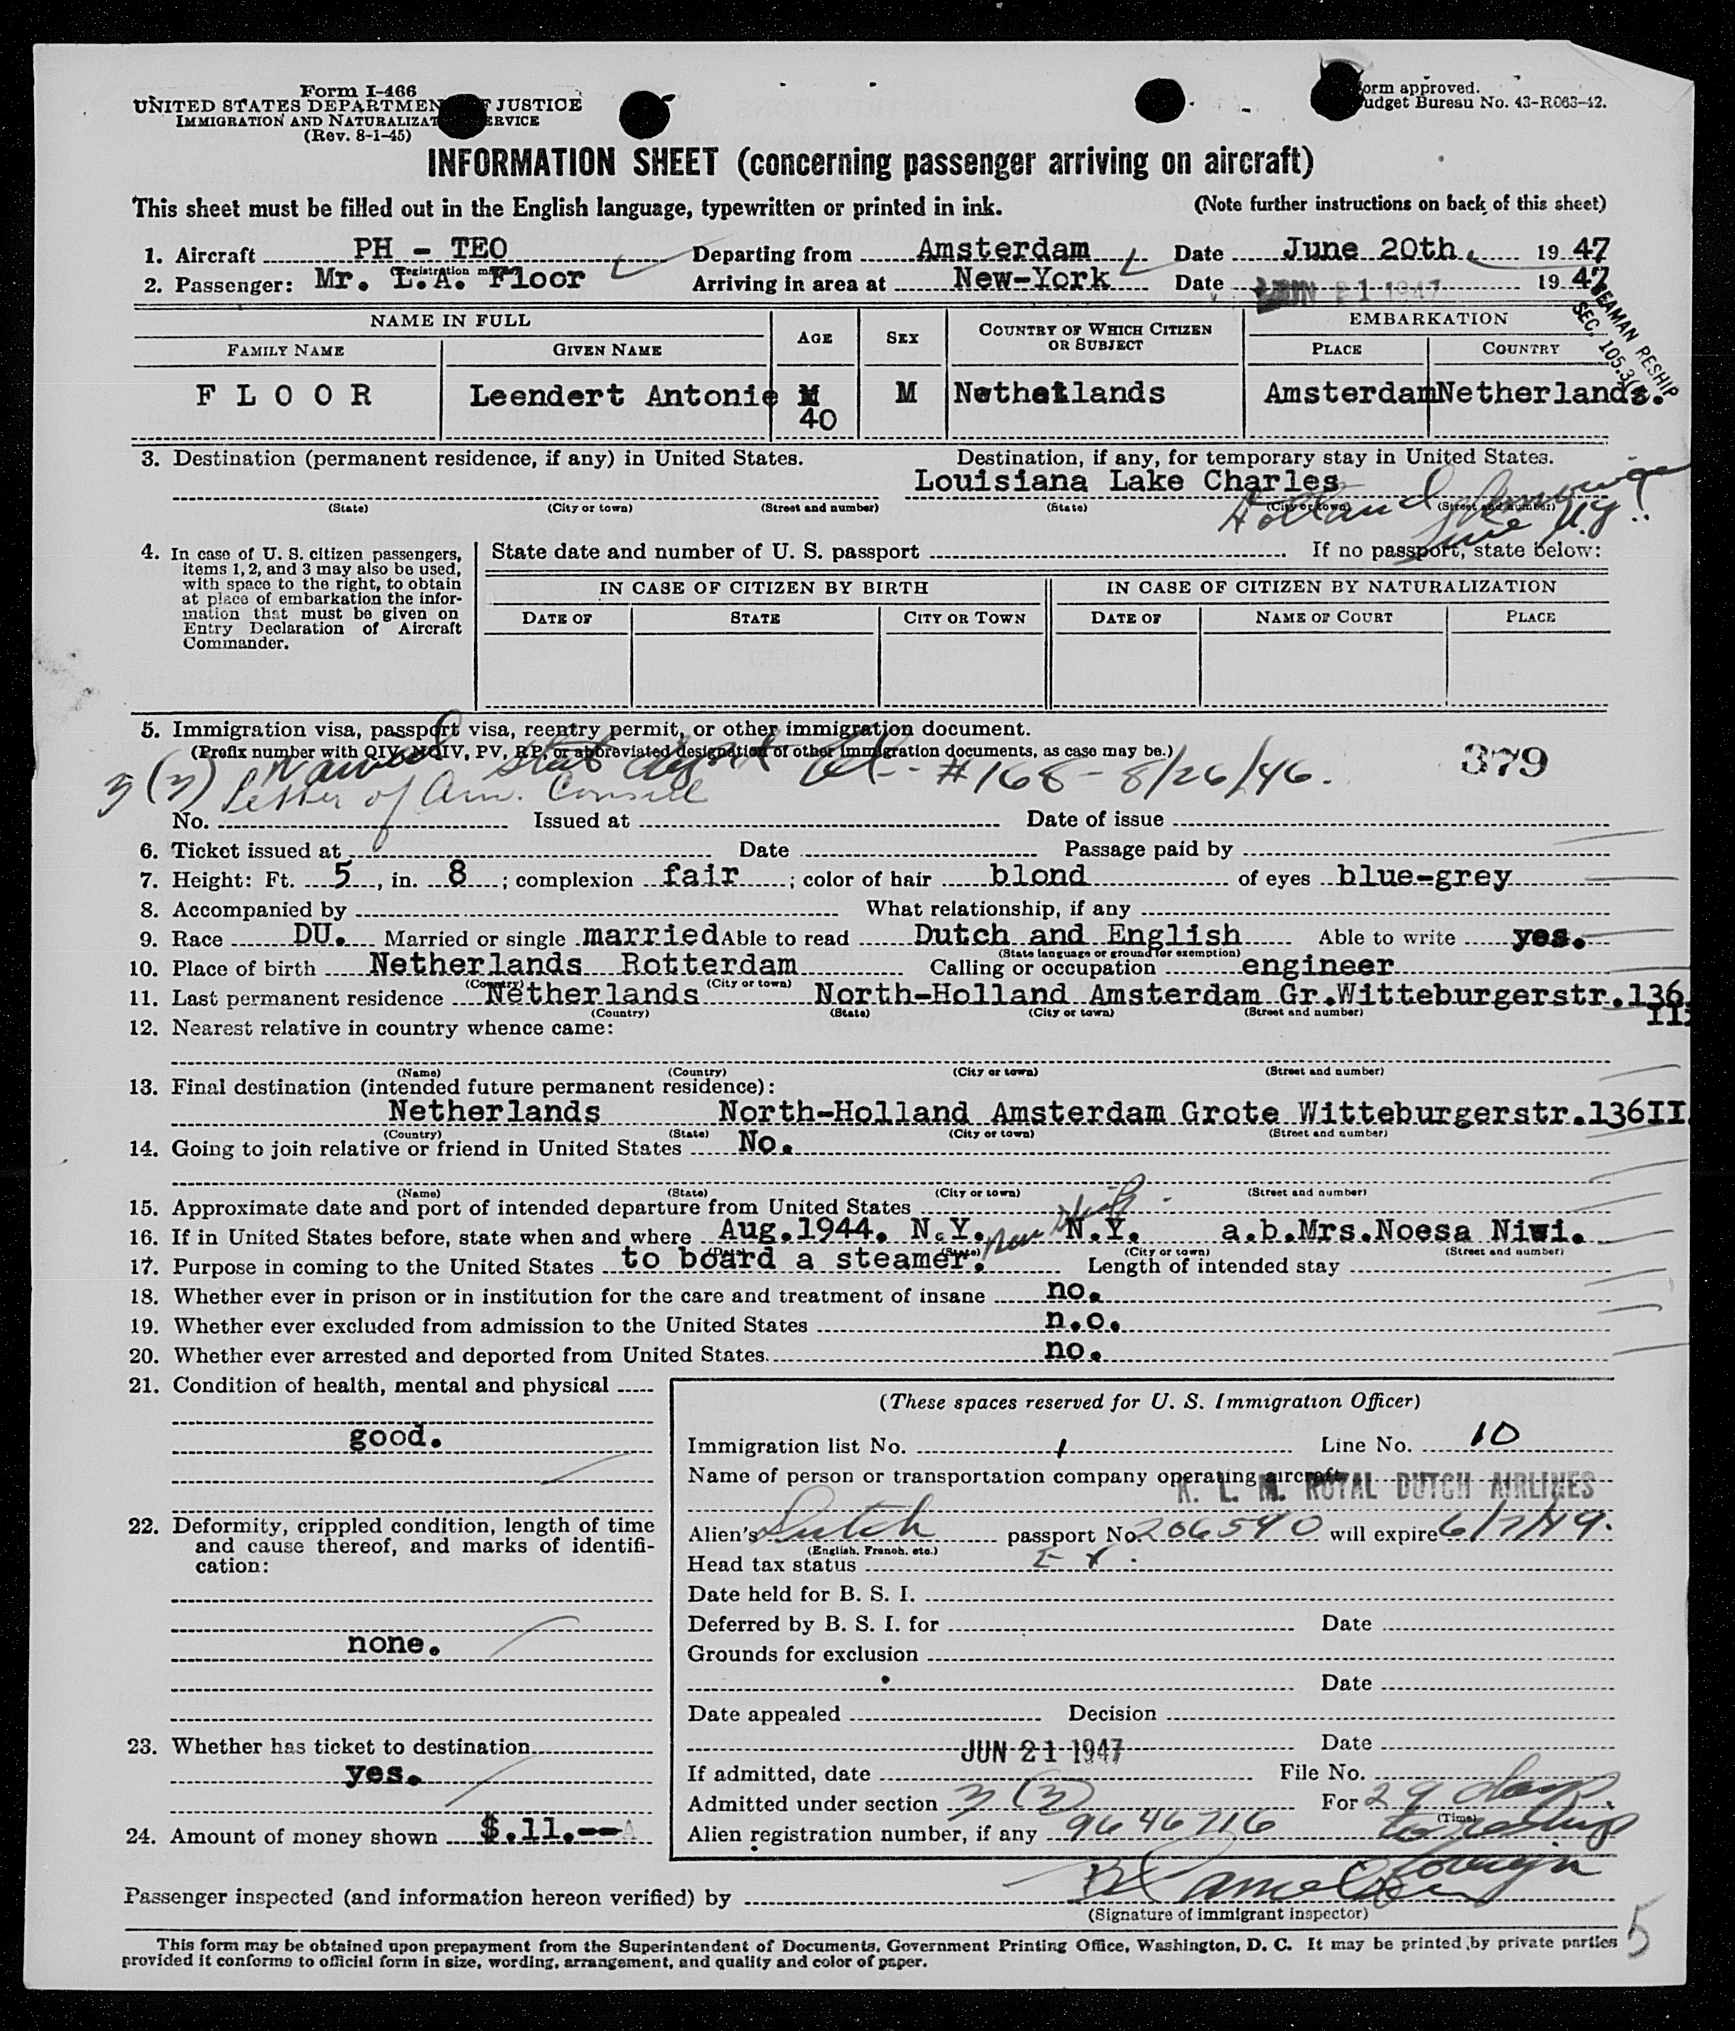 Form I-466
UNITED STATES DEPARTMEN F JUSTICE
IMMIGRATION AND NATURALIZAT ERVICE
(Rev. 8-1-45)
orm approved.
udget Bureau No. 43-R063-42.
INFORMATION SHEET (concerning passenger arriving on aircraft)
This sheet must be filled out in the English language, typewritten or printed in ink. (Note further instructions on back of this sheet)
1. Aircraft PH - TEO Departing from Amsterdam Date June 20th. 1947
2. Passenger: Mr. L.A. Floor Arriving in area at New-York Date JUN 21 1947 1947
SEAMAN RESHIP
SEC. 105.3(
NAME IN FULL AGE SEX COUNTRY OF WHICH CITIZEN OR SUBJECT EMBARKATION
FAMILY NAME GIVEN NAME PLACE COUNTRY
F L O O R Leendert Antonie M Netherlands Amsterdam Netherlands.
40
3. Destination (permanent residence, if any) in United States. Destination, if any, for temporary stay in United States.
Louisiana Lake Charles
(State) (City or town) (Street and number) (State) (City or town) (Street and number)
Holland America
Line N.Y.
4. In case of U. S. citizen passengers, items 1, 2, and 3 may also be used, with space to the right, to obtain at place of embarkation the information that must be given on Entry Declaration of Aircraft Commander.
State date and number of U. S. passport If no passport, state below:
IN CASE OF CITIZEN BY BIRTH IN CASE OF CITIZEN BY NATURALIZATION
DATE OF STATE CITY OR TOWN DATE OF NAME OF COURT PLACE
5. Immigration visa, passport visa, reentry permit, or other immigration document.
(Prefix number with QIV, NQIV, PV, RP, or abbreviated designation of other immigration documents, as case may be.)
3(3) Waived State Dept Let. - #168 - 8/26/46.
379
Letter of Am. Consul
No. Issued at Date of issue
6. Ticket issued at Date Passage paid by
7. Height: Ft. 5, in. 8; complexion fair; color of hair blond of eyes blue-grey
8. Accompanied by What relationship, if any
9. Race DU. Married or single married Able to read Dutch and English Able to write yes.
(State language or ground for exemption)
10. Place of birth Netherlands Rotterdam Calling or occupation engineer
(Country) (City or town)
11. Last permanent residence Netherlands North-Holland Amsterdam Gr.Witteburgerstr.136
II.
(Country) (State) (City or town) (Street and number)
12. Nearest relative in country whence came:
(Name) (Country) (City or town) (Street and number)
13. Final destination (intended future permanent residence):
Netherlands North-Holland Amsterdam Grote Witteburgerstr.136II.
(Country) (State) (City or town) (Street and number)
14. Going to join relative or friend in United States No.
(Name) (State) (City or town) (Street and number)
15. Approximate date and port of intended departure from United States
16. If in United States before, state when and where Aug.1944. N.Y. N.Y. a.b.Mrs.Noesa Niwi.
(Date) (State) (City or town) (Street and number)
17. Purpose in coming to the United States to board a steamer. Length of intended stay
18. Whether ever in prison or in institution for the care and treatment of insane no.
19. Whether ever excluded from admission to the United States n.o.
20. Whether ever arrested and deported from United States. no.
21. Condition of health, mental and physical
good.
22. Deformity, crippled condition, length of time and cause thereof, and marks of identification:
none.
23. Whether has ticket to destination
yes.
24. Amount of money shown $.11.--
(These spaces reserved for U. S. Immigration Officer)
Immigration list No. 1 Line No. 10
Name of person or transportation company operating aircraft
K. L. M. ROYAL DUTCH AIRLINES
Alien's Dutch passport No. 206590 will expire 6/7/49.
(English, French, etc.)
Head tax status Ex.
Date held for B. S. I.
Deferred by B. S. I. for Date
Grounds for exclusion
Date
Date appealed Decision
Date
JUN 21 1947
If admitted, date File No.
Admitted under section 3(3) For 29 days
(Time)
Alien registration number, if any 9646716 to reship
foreign
Passenger inspected (and information hereon verified) by
(Signature of immigrant inspector)
5
This form may be obtained upon prepayment from the Superintendent of Documents, Government Printing Office, Washington, D. C. It may be printed by private parties
provided it conforms to official form in size, wording, arrangement, and quality and color of paper.